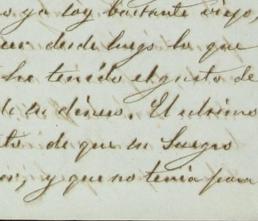 o ya soy bastante viejo,
desde luego lo que
he tenido el gusto de
de su dinero. El ultimo
to de que su Suegro
or, y que no tenia para